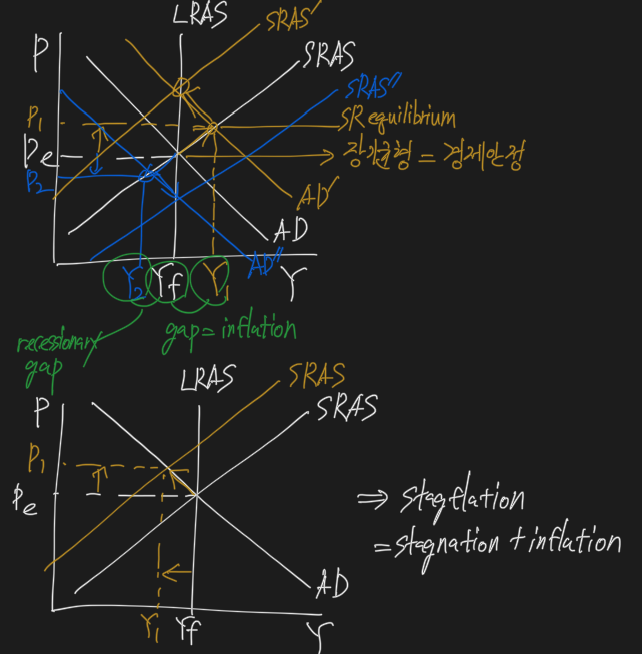 LRAS
SRAS'
P
SRAS
SRAS''
P1
SR equilibrium
Pe
장기균형 = 경제안정
P2
AD'
AD
AD''
Y2
Yf
Y1
Y
recessionary
gap
gap = inflation
LRAS
SRAS
P
SRAS
P1
Pe
⇒ stagflation
= stagnation + inflation
AD
Y1
Yf
Y